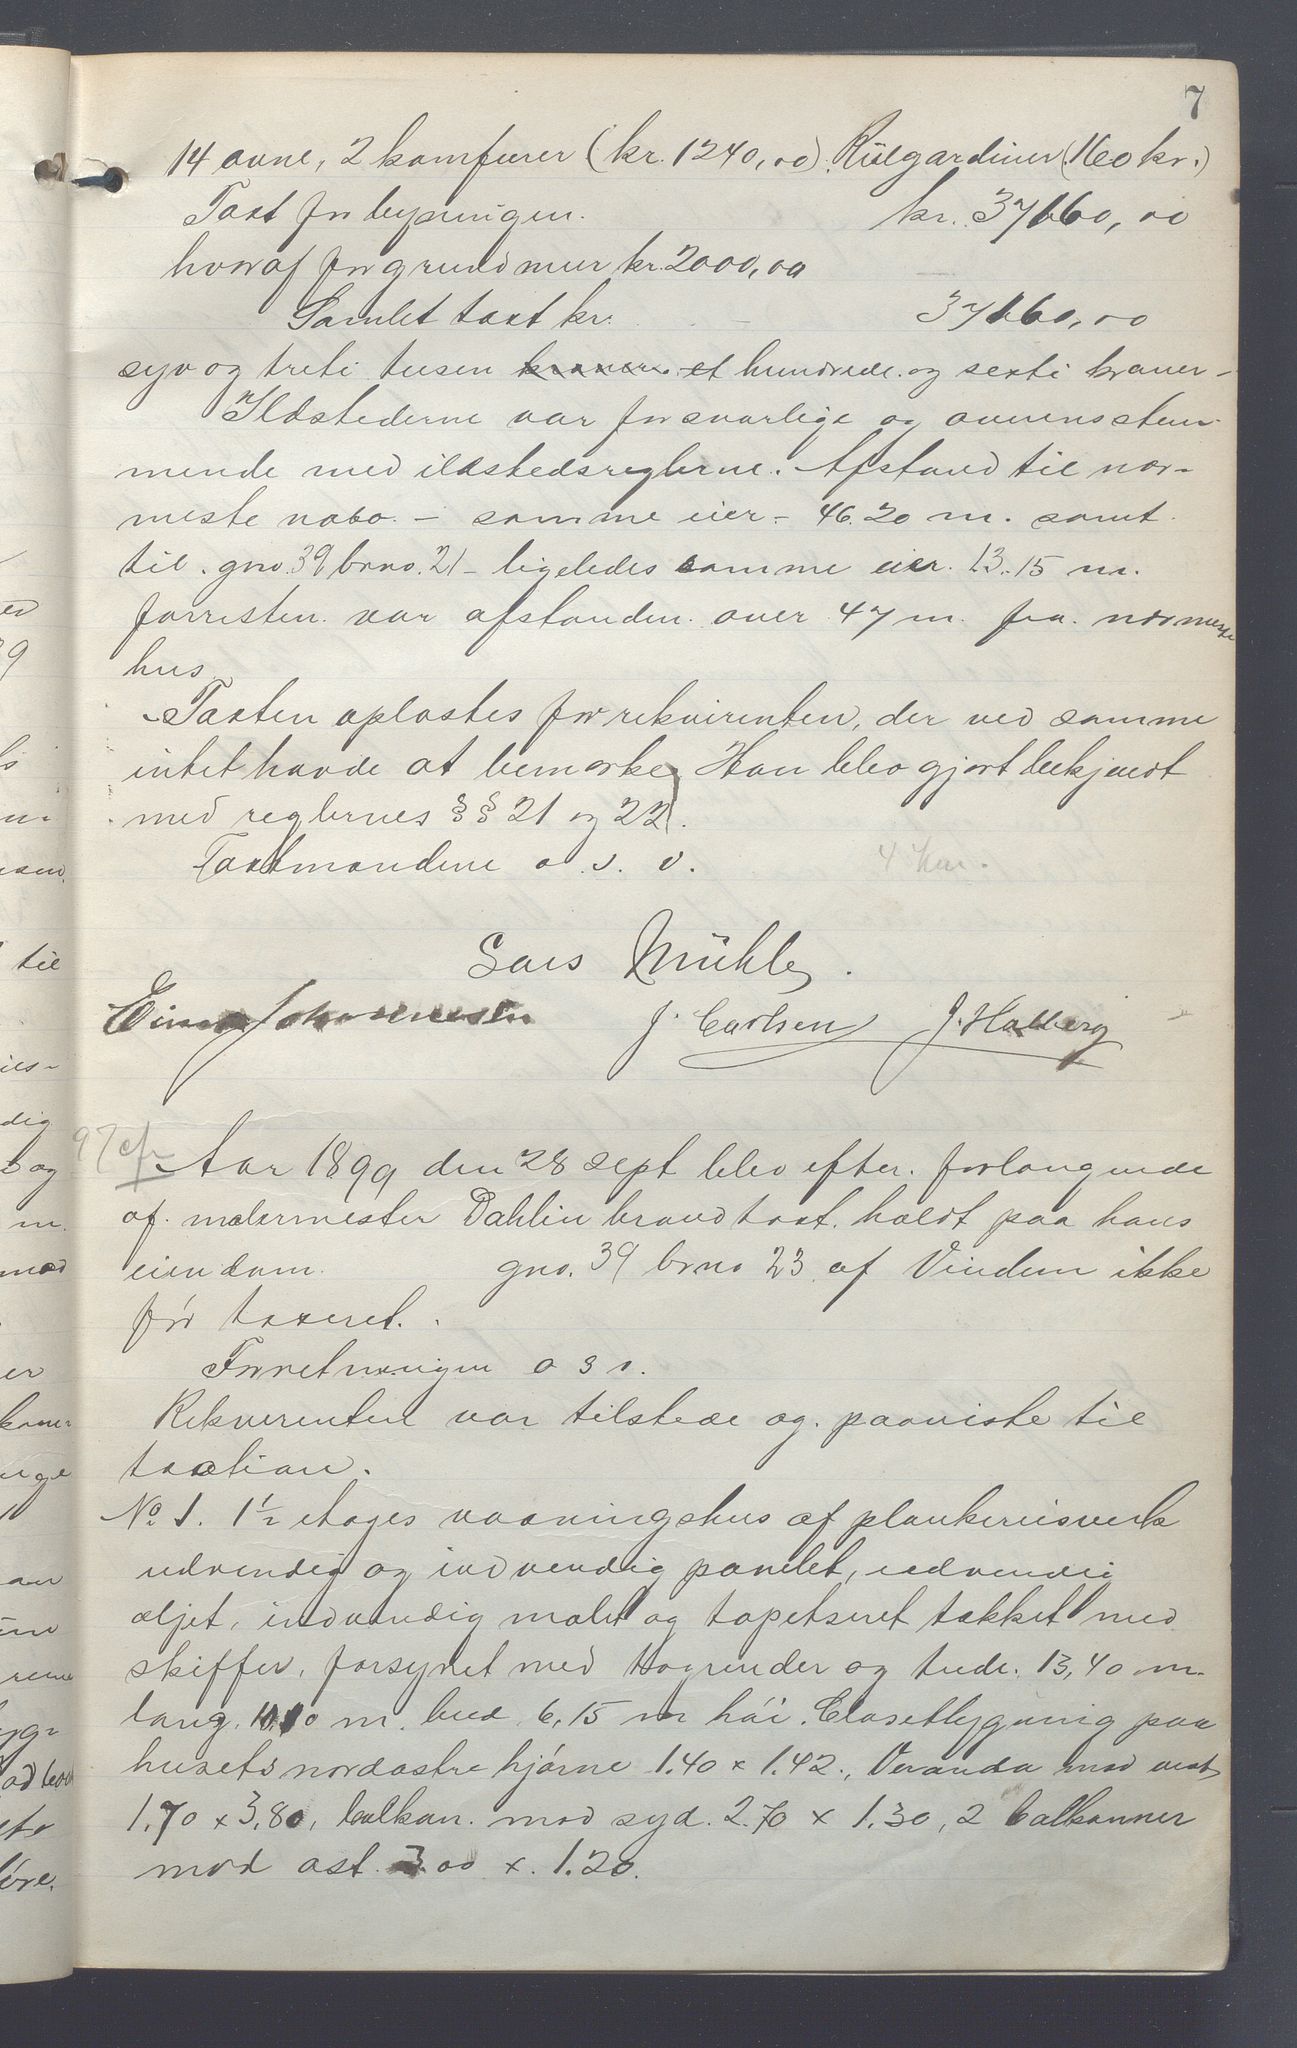 7
14 ovne, 2 komfurer (kr. 1240,00). Rulgardiner (160 kr.)
Taxt for bygningen. kr. 37160,00
hvoraf for grundmur kr. 2000,00
Samlet taxt kr. 37160,00
syv og treti tusen kroner et hundrede og sexti kroner -
Ildstederne var forsvarlige og overensstem-
mende med ildstedsreglerne. Afstand til nær-
meste nabo. - samme eier - 46.20 m. samt
til. gno. 39 brno. 21 - ligeledes samme eier. 13.15 m.
forresten var afstanden over 47 m. fra nærmeste
hus
Taxten oplæstes for rekvirenten, der ved samme
intet havde at bemærke. Han blev gjort bekjendt
med reglernes §§ 21 og 22.
Taxtmændene o. s. v. 4 km.
Lars Mühle.
Einar Johannesen J. Carlsen J. Halberg
97 cfr
Aar 1899 den 28 sept blev efter forlangende
af malermester Dahlin brandtaxt. holdt paa hans
eiendom. gno. 39 brno 23 af Vindern ikke
før taxeret.
Forretningen o s v.
Rekverenten var tilstede og paaviste til
taxtion.
No. 1. 1½ etages vaaningshus af plankereisverk
udvendig og indvendig panelet, udvendig
oljet, indvendig malet og tapetseret tækket med
skiffer, forsynet med tagrender og nedl. 13,40 m.
lang 10,10 m. bred 6,15 m høi. Closetbygning paa
husets nordøstre hjørne 1.40 x 1.42., Veranda mod vest
1.70 x 3.80, balkon. mod syd. 2.70 x 1.30, 2 balkonner
mod øst 3.00 x. 1.20.